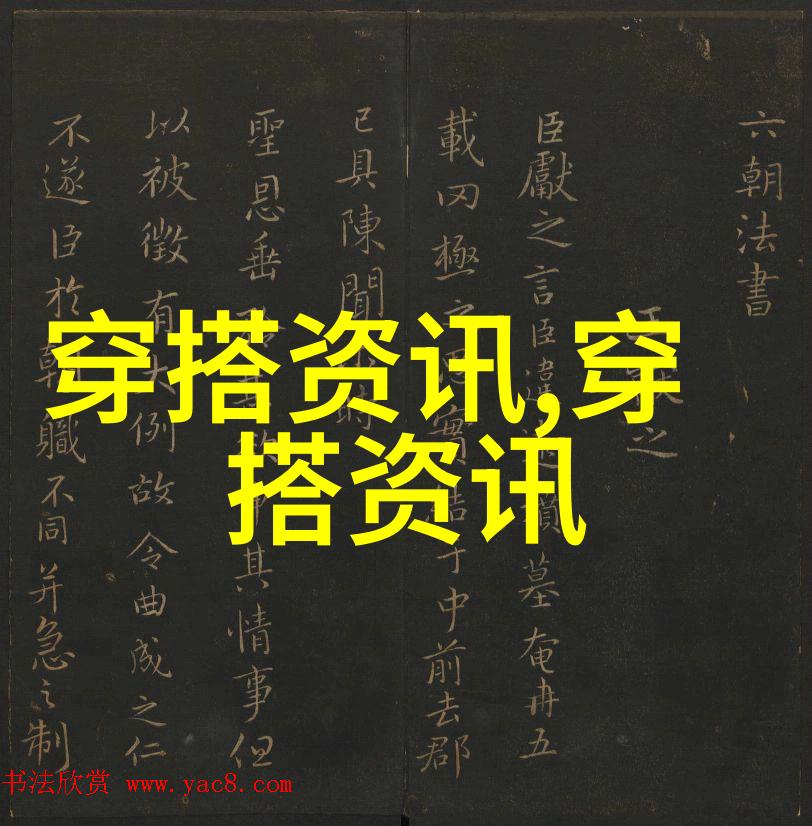 六朝法書
之
臣獻之言臣違墓奄冉五
載罔極之實結于中前去郡
已具陳聞
聖恩垂其情事但
以被徵有大例故令曲成之仁
不遂臣於朝職不同并急之制
穿搭资讯,穿
搭资讯
书法欣赏 www.yac8.com